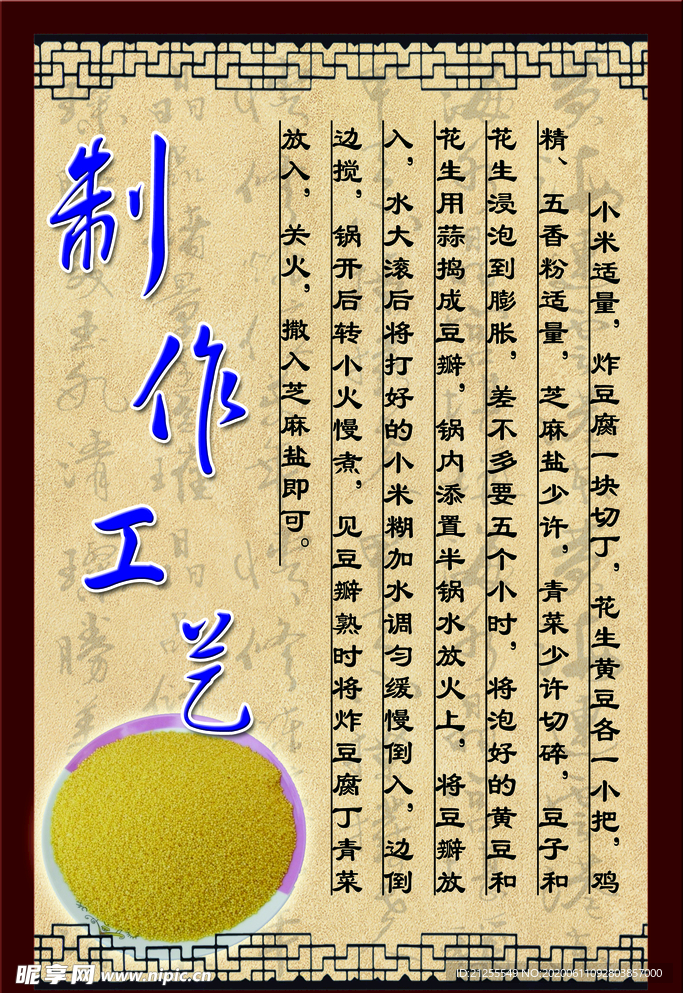 制作工艺
小米适量，炸豆腐一块切丁，花生黄豆各一小把，鸡
精、五香粉适量，芝麻盐少许，青菜少许切碎，豆子和
花生浸泡到膨胀，差不多要五个小时，将泡好的黄豆和
花生用蒜捣成豆瓣，锅内添置半锅水放火上，将豆瓣放
入，水大滚后将打好的小米糊加水调匀缓慢倒入，边倒
边搅，锅开后转小火慢煮，见豆瓣熟时将炸豆腐丁青菜
放入，关火，撒入芝麻盐即可。
昵享网 www.nipic.cn
ID:21255549 NO:20200611092803857000